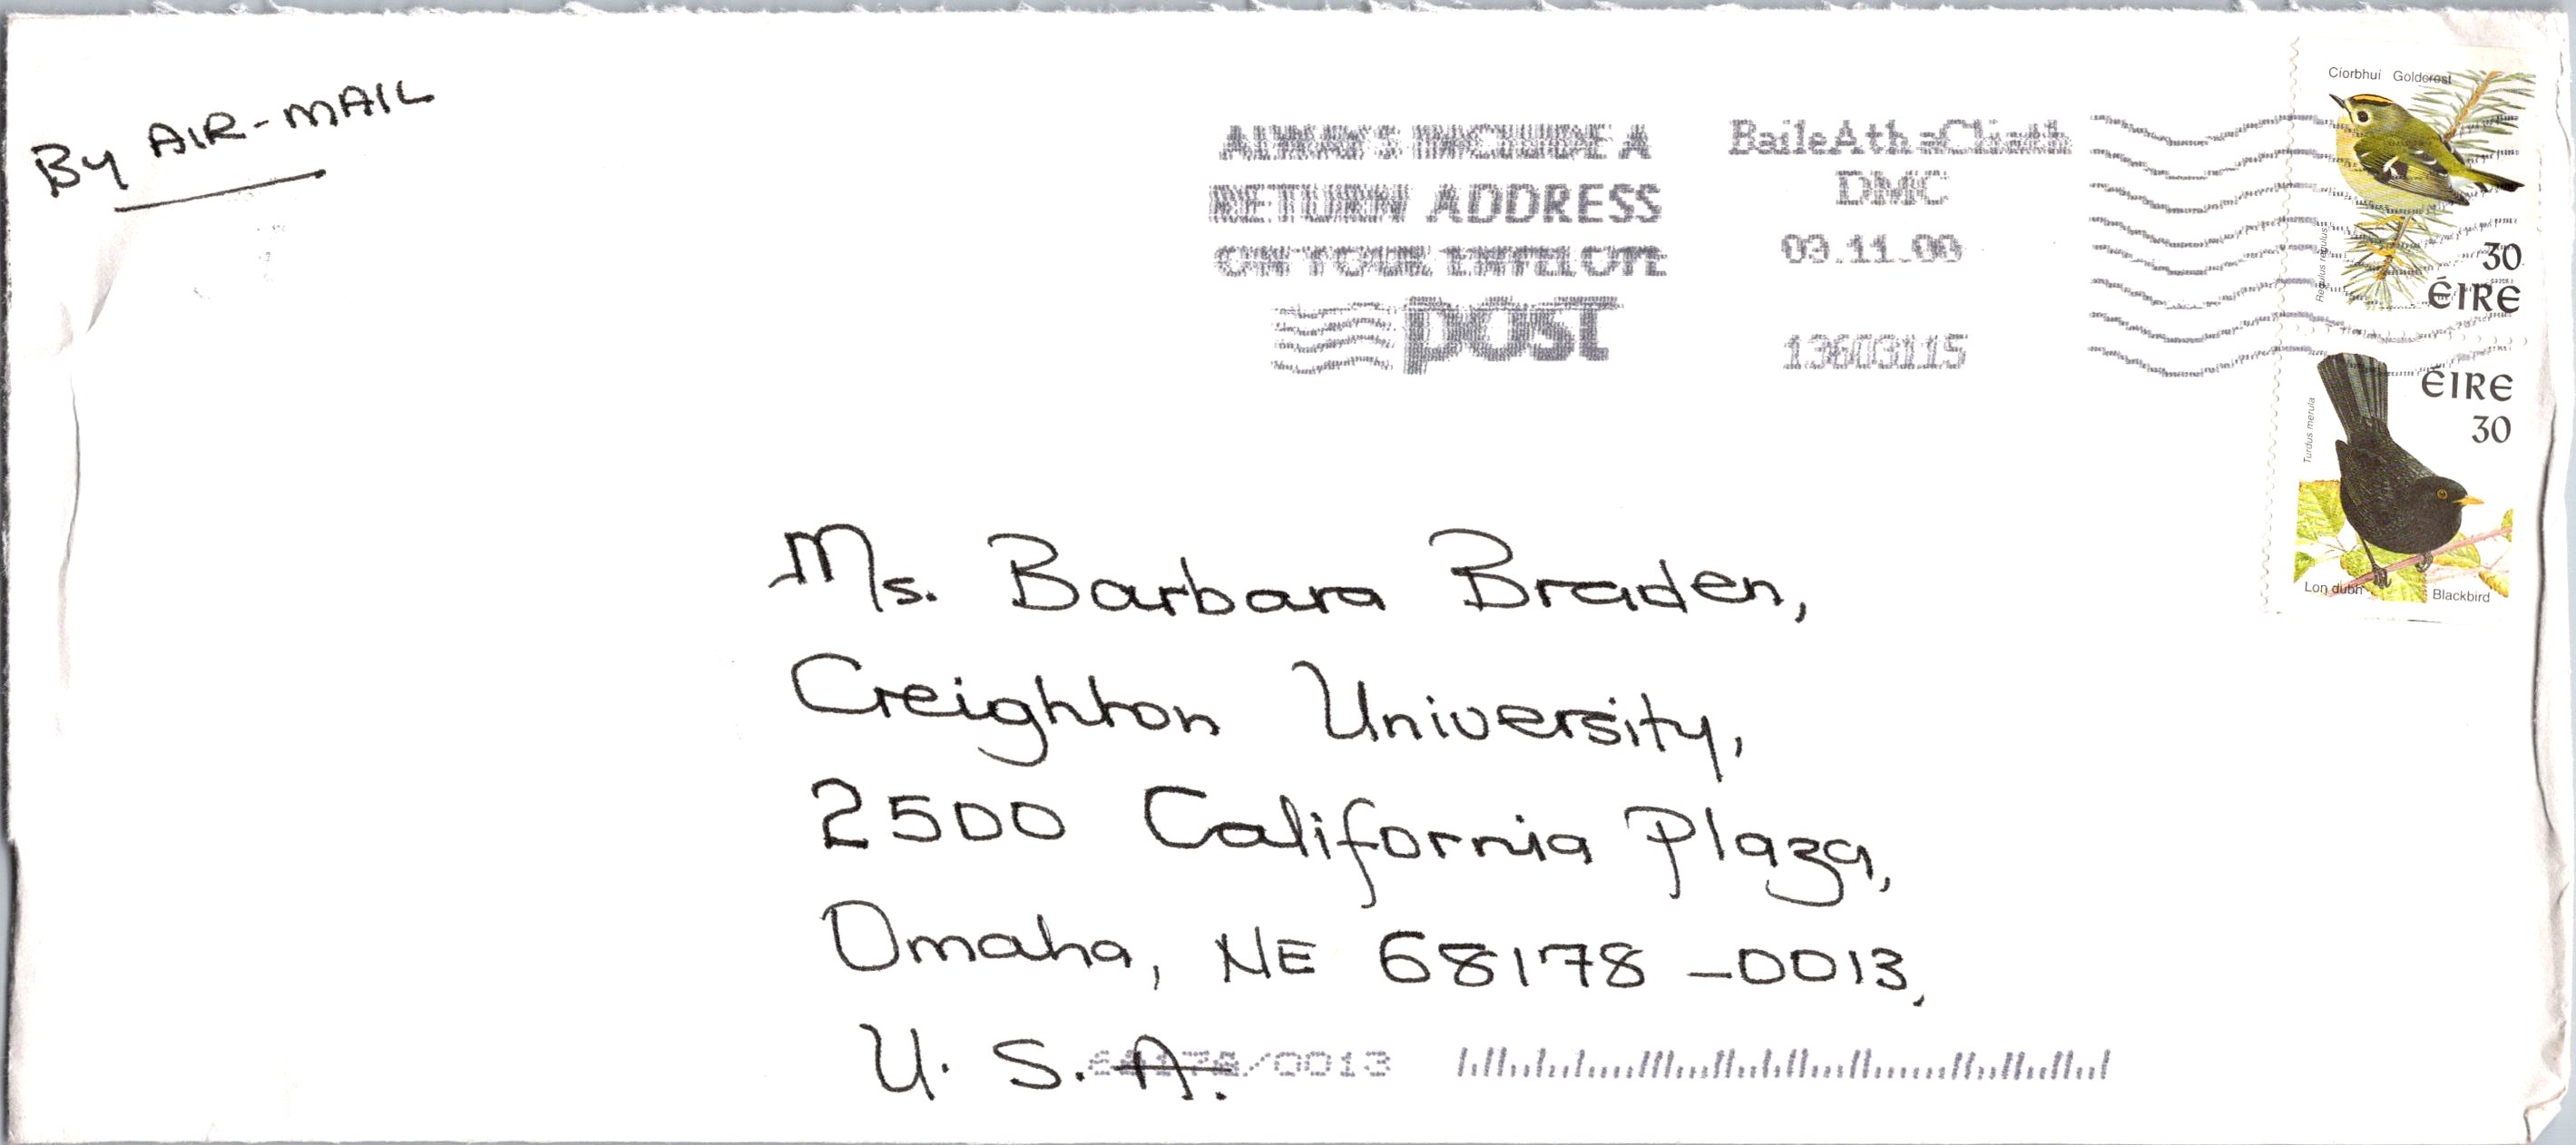 By AIR-MAIL
ALWAYS INCLUDE A
RETURN ADDRESS
ON YOUR ENVELOPE
POST
Baile Atha Cliath
DMC
03.11.00
13603115
Cíorbhuí Goldcrest
Regulus regulus
30
ÉIRE
ÉIRE
30
Turdus merula
Lon dubh Blackbird
Ms. Barbara Braden,
Creighton University,
2500 California Plaza,
Omaha, NE 68178-0013,
U. S. A.
68178/0013